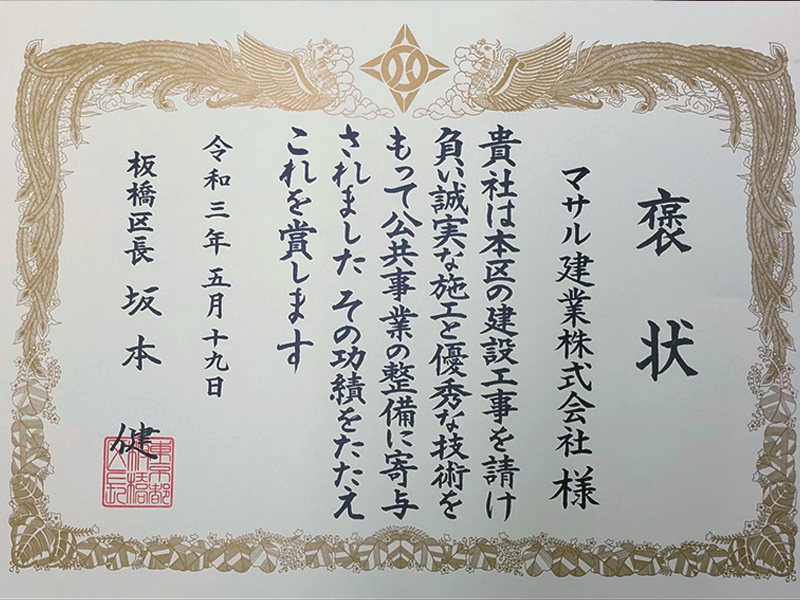 褒状
マサル建業株式会社 様
貴社は本区の建設工事を請け
負い誠実な施工と優秀な技術を
もって公共事業の整備に寄与
されました その功績をたたえ
これを賞します
令和三年五月十九日
板橋区長 坂本 健
東京都
板橋
区長